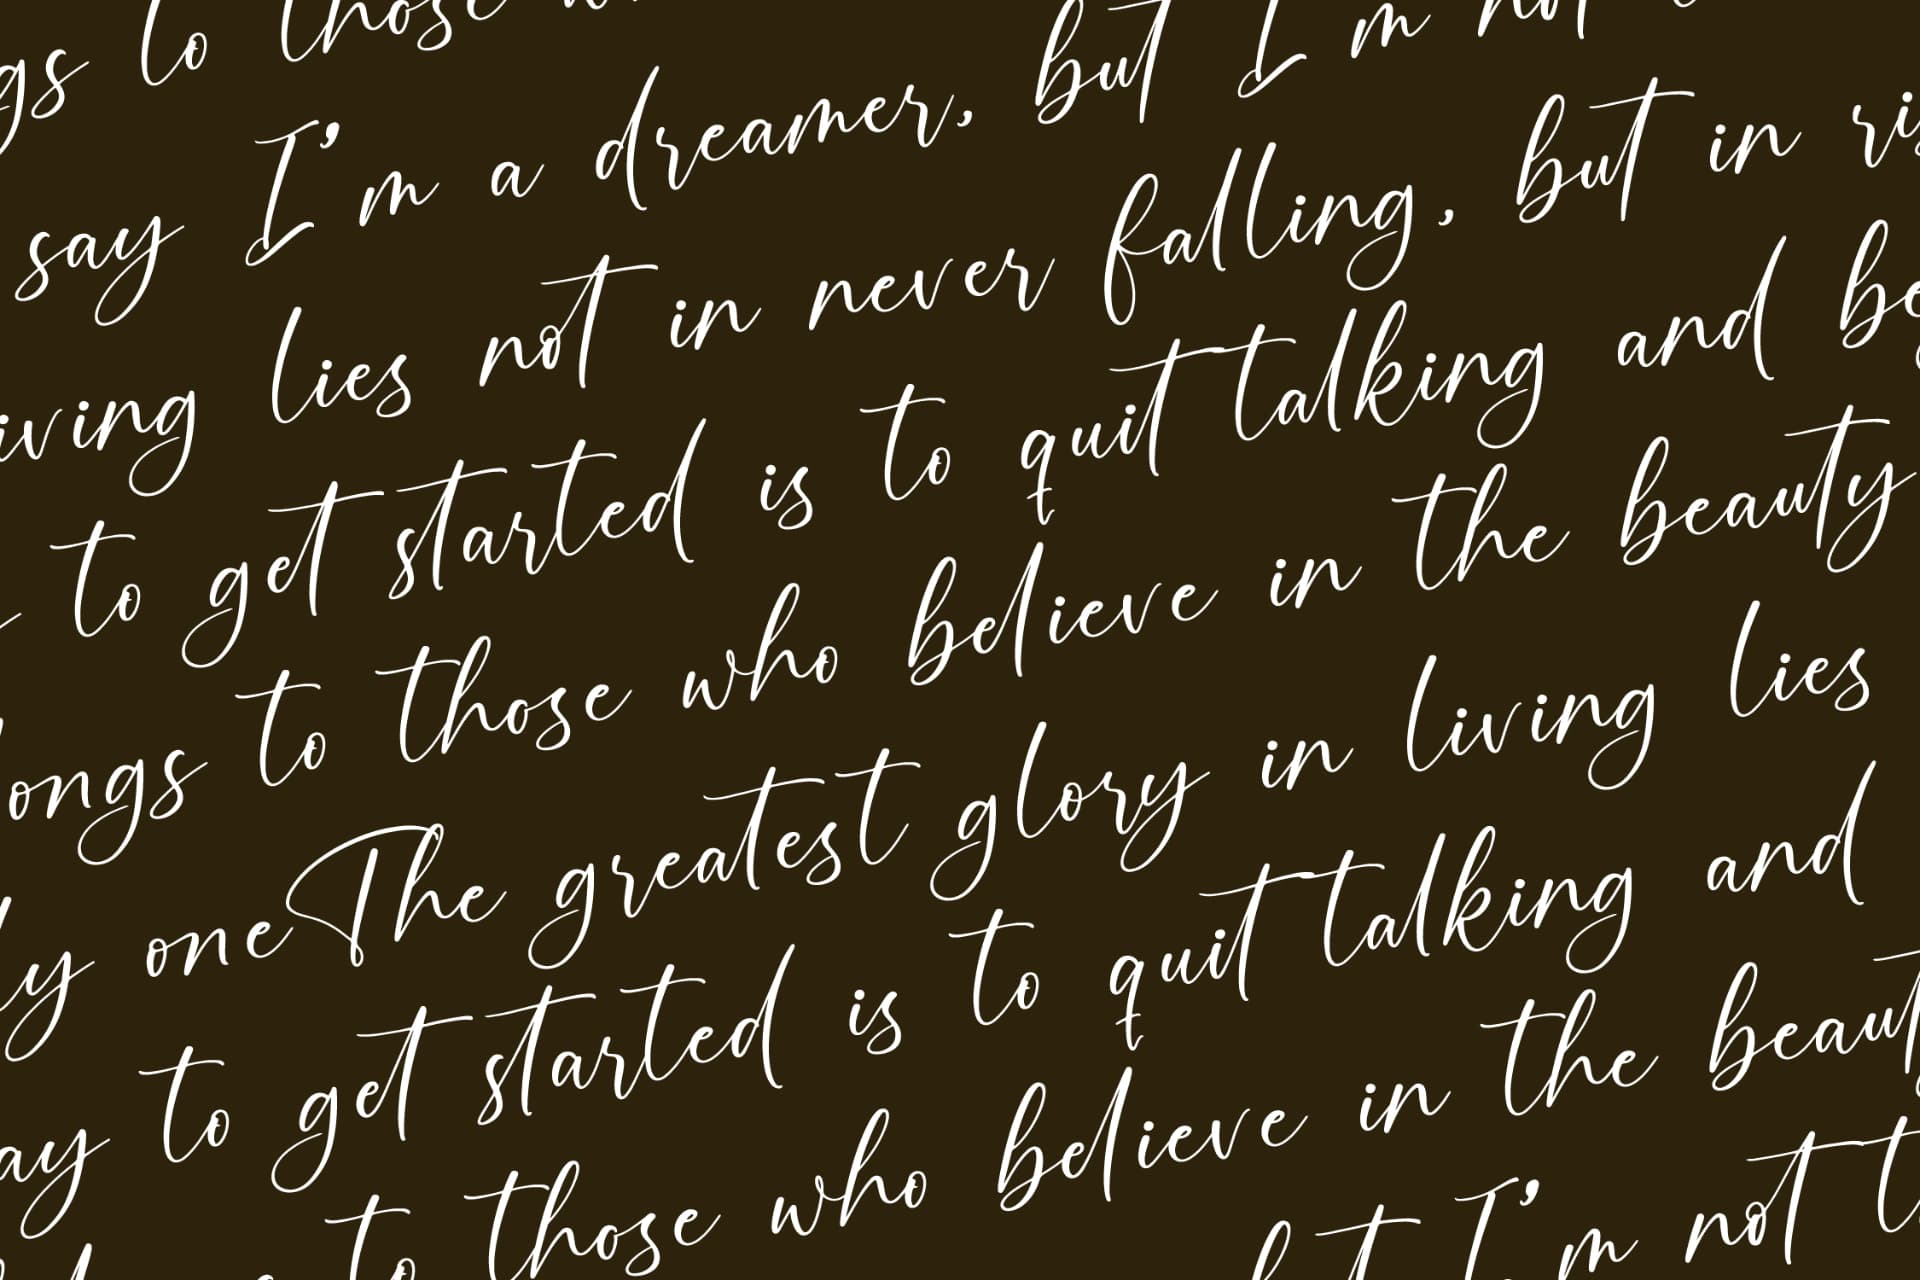 to those
say I'm a dreamer, but I'm
lies not in never falling, but in
to get started is to quit talking and
to those who believe in the beauty
one The greatest glory in living lies
to get started is to quit talking and
to those who believe in the
I'm not